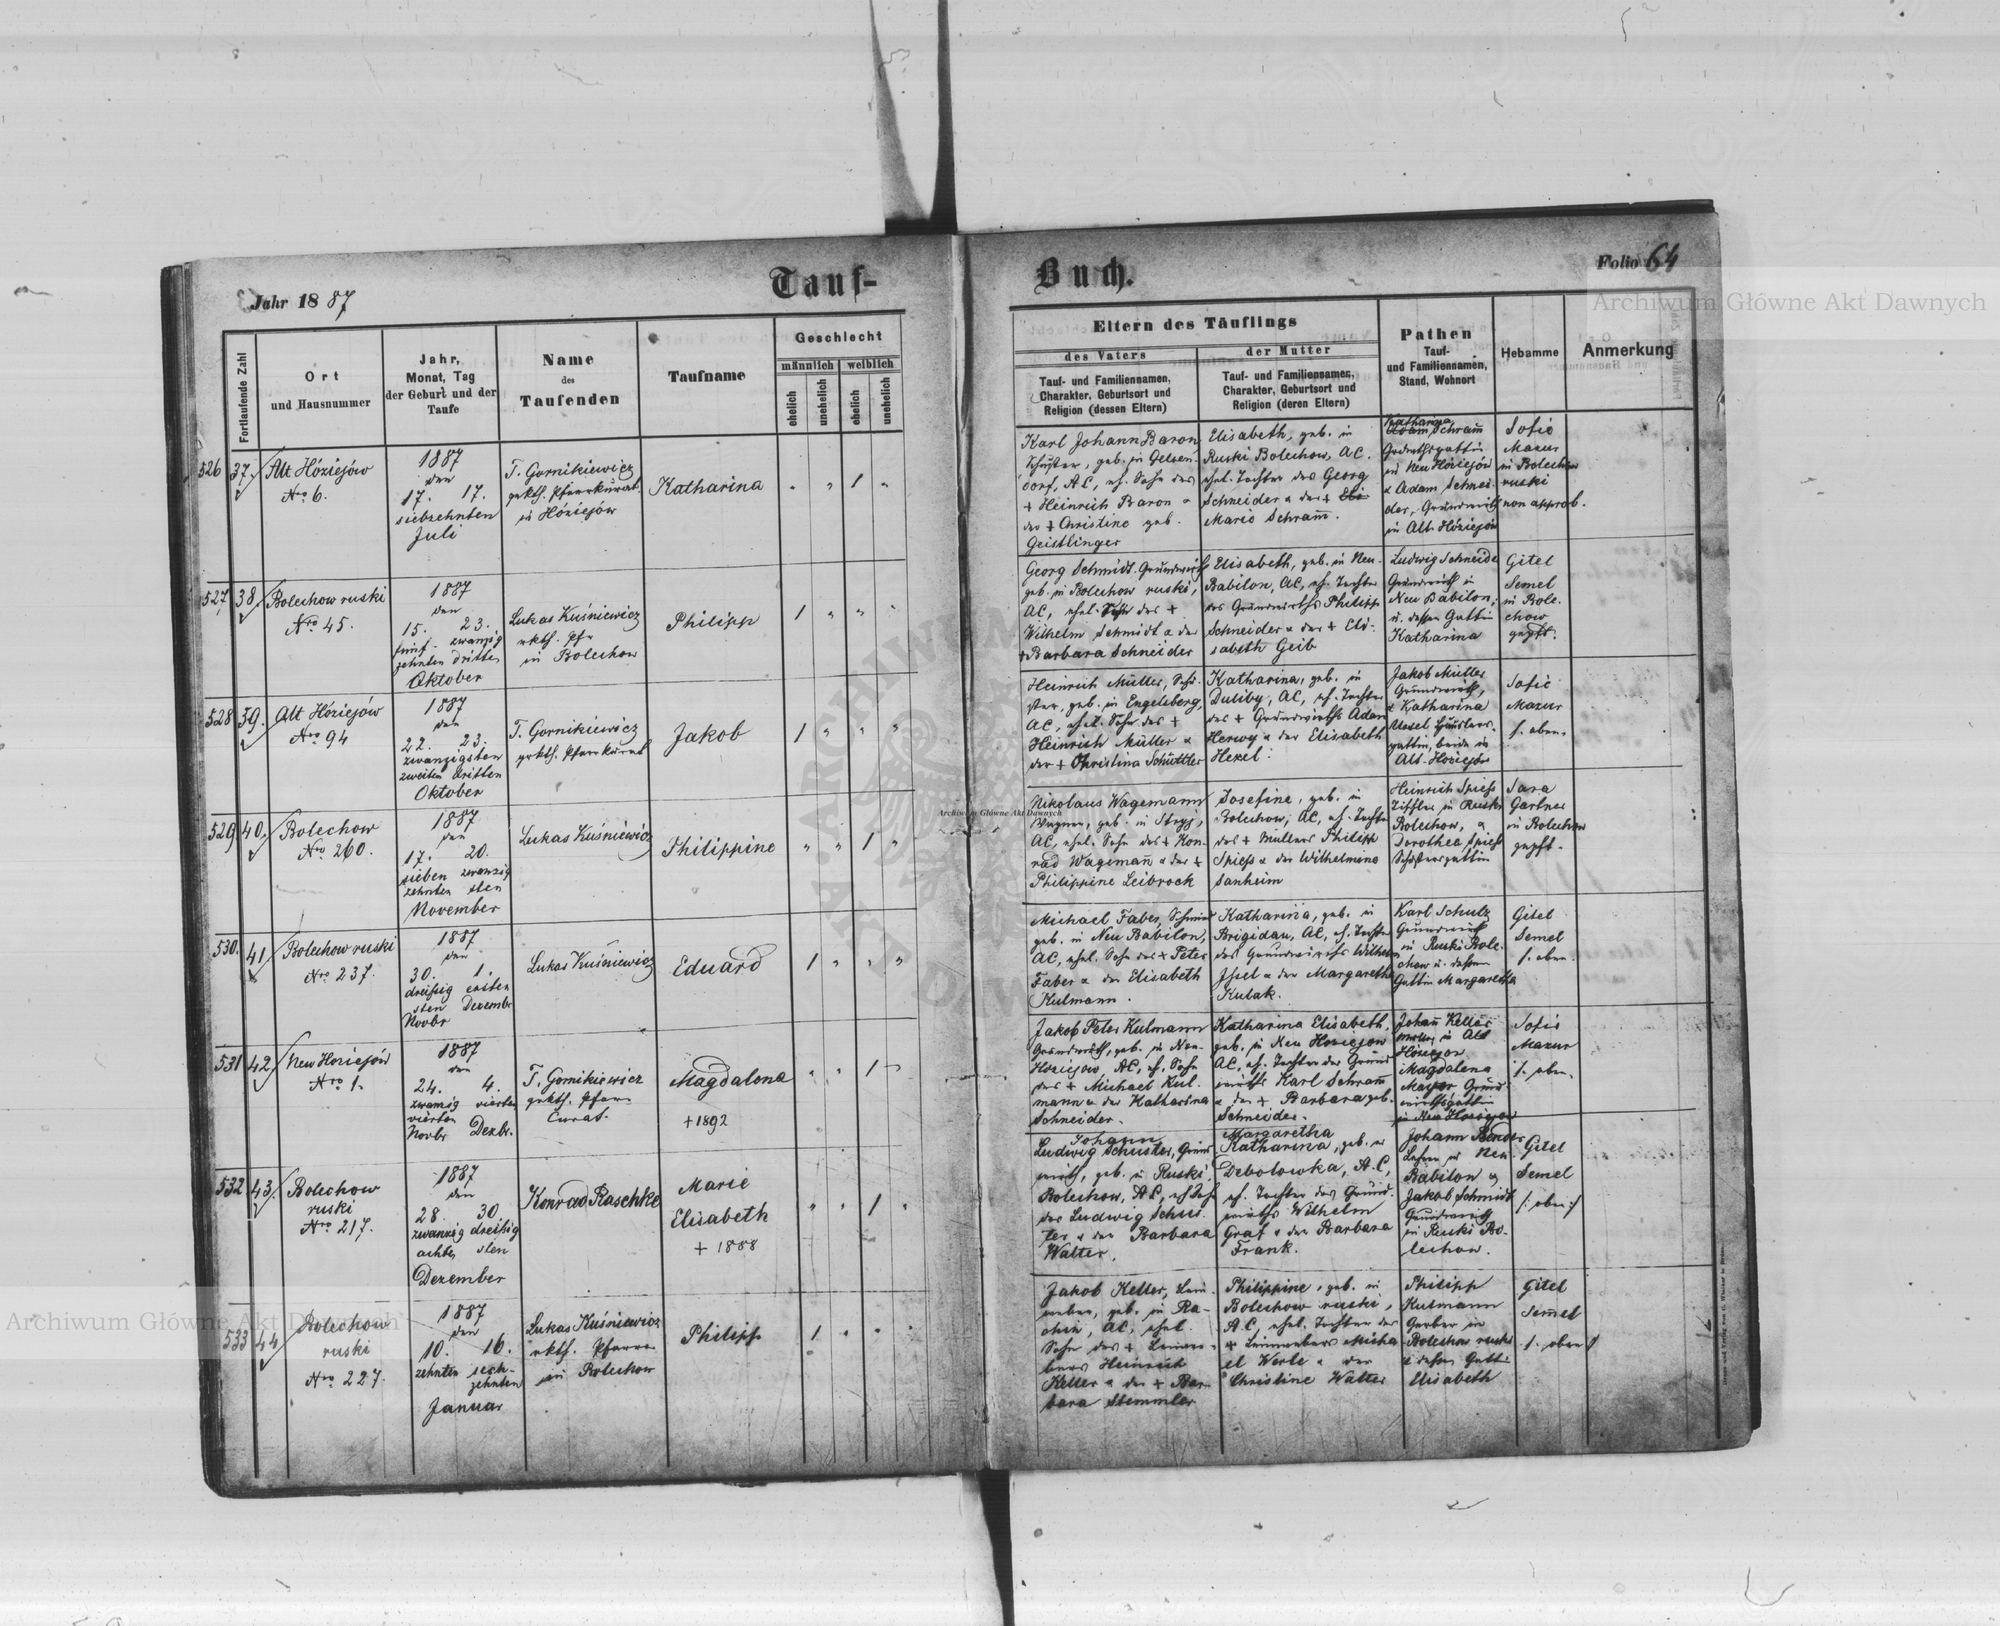 Tauf-Buch.
Jahr 1887
Folio 64
Archiwum Główne Akt Dawnych
Fortlaufende Zahl
Ort
und Hausnummer
Jahr,
Monat, Tag
der Geburt und der
Taufe
Name
des
Taufenden
Taufname
Geschlecht
männlich
weiblich
ehelich
unehelich
ehelich
unehelich
Eltern des Täuflings
des Vaters
der Mutter
Tauf- und Familiennamen,
Charakter, Geburtsort und
Religion (dessen Eltern)
Tauf- und Familiennamen,
Charakter, Geburtsort und
Religion (deren Eltern)
Pathen
Tauf-
und Familiennamen,
Stand, Wohnort
Hebamme
Anmerkung
526 37.
Alt Hóziejów
Nro 6.
1887
den
17. 17.
siebzehnten
Juli
T. Gornikiewicz
grkth. Pfarrkurat
in Hóziejów
Katharina
" " 1 "
Karl Johann Baron
Schuster, geb. in Gelsen-
dorf, AC, eh. Sohn des
+ Heinrich Baron &
der + Christine geb.
Geistlinger
Elisabeth, geb. in
Ruski Bolechow, AC.
ehel. Tochter des Georg
Schneider & der +
Marie Schram̄.
Katharina
Schram̄
Grdwthsgattin
in Neu Hóziejów
& Adam Schnei-
der, Grundwirth
in Alt Hóziejów
Sofie
Mazur
in Bolechow
ruski
non approb.
527 38
Bolechow ruski
Nro 45.
1887
den
15. 23.
fünf- zwanzig
zehnten dritten
Oktober
Lukas Kuśniewicz
rkth. Pfr
in Bolechow
Philipp
1 " " "
Georg Schmidt, Grundwirth
geb. in Bolechow ruski,
AC, ehel. Sohn des +
Wilhelm Schmidt & der
+ Barbara Schneider
Elisabeth, geb. in Neu-
Babilon, AC, eh. Tochter
des Grundwirths Philipp
Schneider & der + Eli-
sabeth Geib
Ludwig Schneider
Grundwirth in
Neu Babilon,
u. dessen Gattin
Katharina
Gitel
Semel
in Bole-
chow
gepft.
528 39.
Alt Hóziejów
Nro 94
1887
den
22. 23.
zwanzigsten
zweiten dritten
Oktober
T. Gornikiewicz
grkth. Pfarrkurat
Jakob
1 " " "
Heinrich Müller, Schu-
ster, geb. in Engelsberg,
AC, ehel. Sohn des +
Heinrich Müller &
der + Christina Schüttler
Katharina, geb. in
Duliby, AC, eh. Tochter
des + Grundwirths Adam
Herwy & der Elisabeth
Hexel.
Jakob Müller
Grundwirth,
& Katharina
gattin, beide in
Alt-Hoziejów
Sofie
Mazur
/. oben.
529 40.
Bolechow
Nro 260.
1887
den
17. 20.
sieben zwanzig
zehnten sten
November
Lukas Kuśniewicz
Philippine
" " 1 "
Nikolaus Wagemann
Wagner, geb. in Stryj,
AC, ehel. Sohn des + Kon-
rad Wagemann̄ & der +
Philippine Leibrock
Josefine, geb. in
Bolechow, AC, eh. Tochter
des + Müllers Philipp
Spiess & der Wilhelmine
Sanheim
Heinrich Spiess
in Ruski
Bolechow, &
Dorothea Spiess
Schustergattin
Sara
Gartner
in Bolechow
gepft.
530. 41
Bolechow ruski
Nro 237.
1887
den
30. 1.
dreißig ersten
sten Dezember
Novbr
Lukas Kuśniewicz
Eduard
1 " " "
Michael Faber, Schmied
geb. in Neu Babilon,
AC, ehel. Sohn des + Peter
Faber & der Elisabeth
Kulmann.
Katharina, geb. in
Brigidau, AC, eh. Tochter
des Grundwirths Wilhelm
Issel & der Margaretha
Kulak.
Karl Schulz
Grundwirth
in Ruski Bole-
chow u. dessen
Gattin Margaretha
Gitel
Semel
/. oben.
531 42
Neu Hoziejów
Nro 1.
1887
den
24. 4.
zwanzig vierten
vierten
Novbr Dezbr.
T. Gornikiewicz
grkth. Pfarr-
Curat.
Magdalena
+ 1892
" " 1 "
Jakob Peter Kulmann
Grundwirth, geb. in Neu-
Hoziejow, AC, eh. Sohn
des + Michael Kul-
mann & der Katharina
Schneider.
Katharina Elisabeth,
geb. in Neu Hoziejow
AC, eh. Tochter des Grund-
wirths Karl Schram̄
& der + Barbara geb.
Schneider.
Johan̄ Keller
in Alt
Hóziejow
Magdalena
Mayer Grund-
wirthsgattin
in Neu Hoziejow
Sofie
Mazur
/. oben.
532 43.
Bolechow
ruski
Nro 217.
1887
den
28. 30.
zwanzig dreißig
achten sten
Dezember
Konrad Raschke
Marie
Elisabeth
+ 1888
" " 1 "
Johann
Ludwig Schuster, Grund-
wirth, geb. in Ruski
Bolechow, AC, eh Sohn
des Ludwig Schus-
ter & der Barbara
Walter.
Margaretha
Katharina, geb. in
Debolowka, A.C,
eh. Tochter des Grund-
wirths Wilhelm
Graf & der Barbara
Frank.
Johann Bender
Lehrer in Neu
Babilon &
Jakob Schmidt
Grundwirth
in Ruski Bo-
lechow.
Gitel
Semel
/. oben ./
533 44
Bolechow
ruski
Nro 227.
1887
den
10. 16.
zehnten sech-
zehnten
Januar
Lukas Kuśniewicz
rkth. Pfarrer
in Bolechow
Philipp
1 " " "
Jakob Keller, Lein-
weber, geb. in Ra-
chin, AC, ehel.
Sohn des + Leinwe-
bers Heinrich
Keller & der + Bar-
bara Stemmler
Philippine, geb. in
Bolechow ruski,
A.C, ehel. Tochter des
+ Leinwebers Micha
el Werle & der
Christine Walter
Philipp
Kulmann
Gerber in
Bolechow ruski
& dessen Gattin
Elisabeth
Gitel
Semel
/. oben ./
Archiwum Główne Akt Dawnych
Archiwum Główne Akt Dawnych